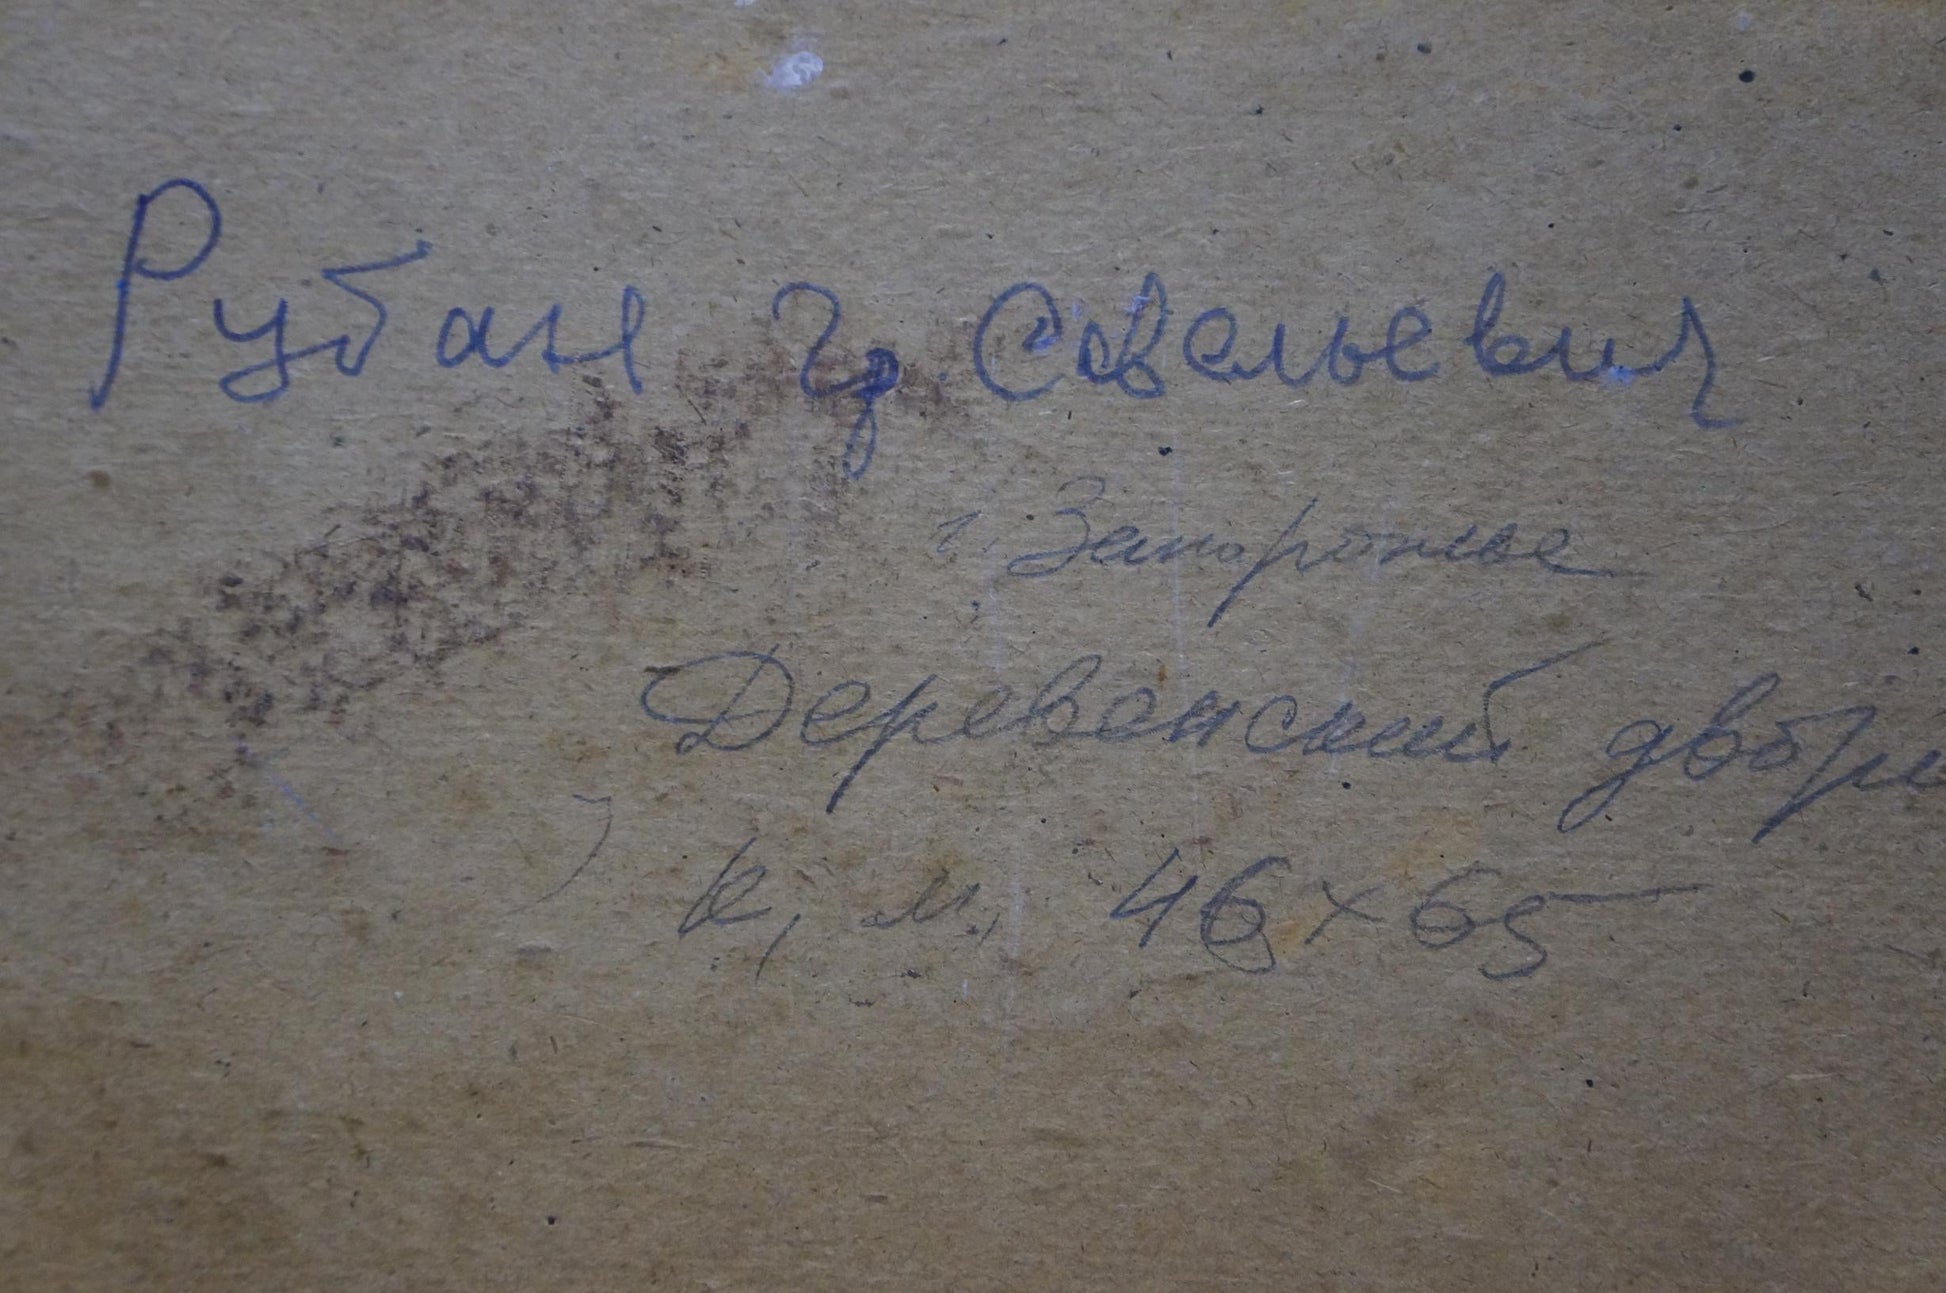 Рубан Гр. Савельевич
г. Запорожье
Деревенский двори
к, м. 46×65